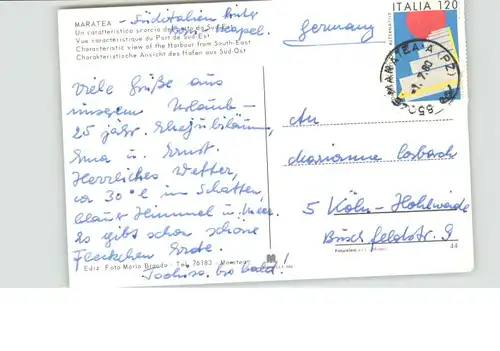 MARATEA - Süditalien hinter
Un caratteristico scorcio del Porto da Sud-Est
Vue caractéristique du Port de Sud-Est
Characteristic view of the Harbour from South-East
Charakteristische Ansicht des Hafen aus Süd-Ost
Germany
ITALIA 120
MARATEA A (PZ)
Viele Grüße aus
unserem Urlaub -
25 jähr. Ehejubiläum,
Erna u. Ernst.
Herrliches Wetter,
30° C im Schatten,
blauer Himmel u. Meer.
Es gibt schon schöne
Fleckchen Erde.
Tschüss, bis bald!
An
Marianne
5 Köln - Hohlweide
Buschfeldstr. 9
Ediz. Foto Mario Brando - Tel. 76183 - Maratea
44